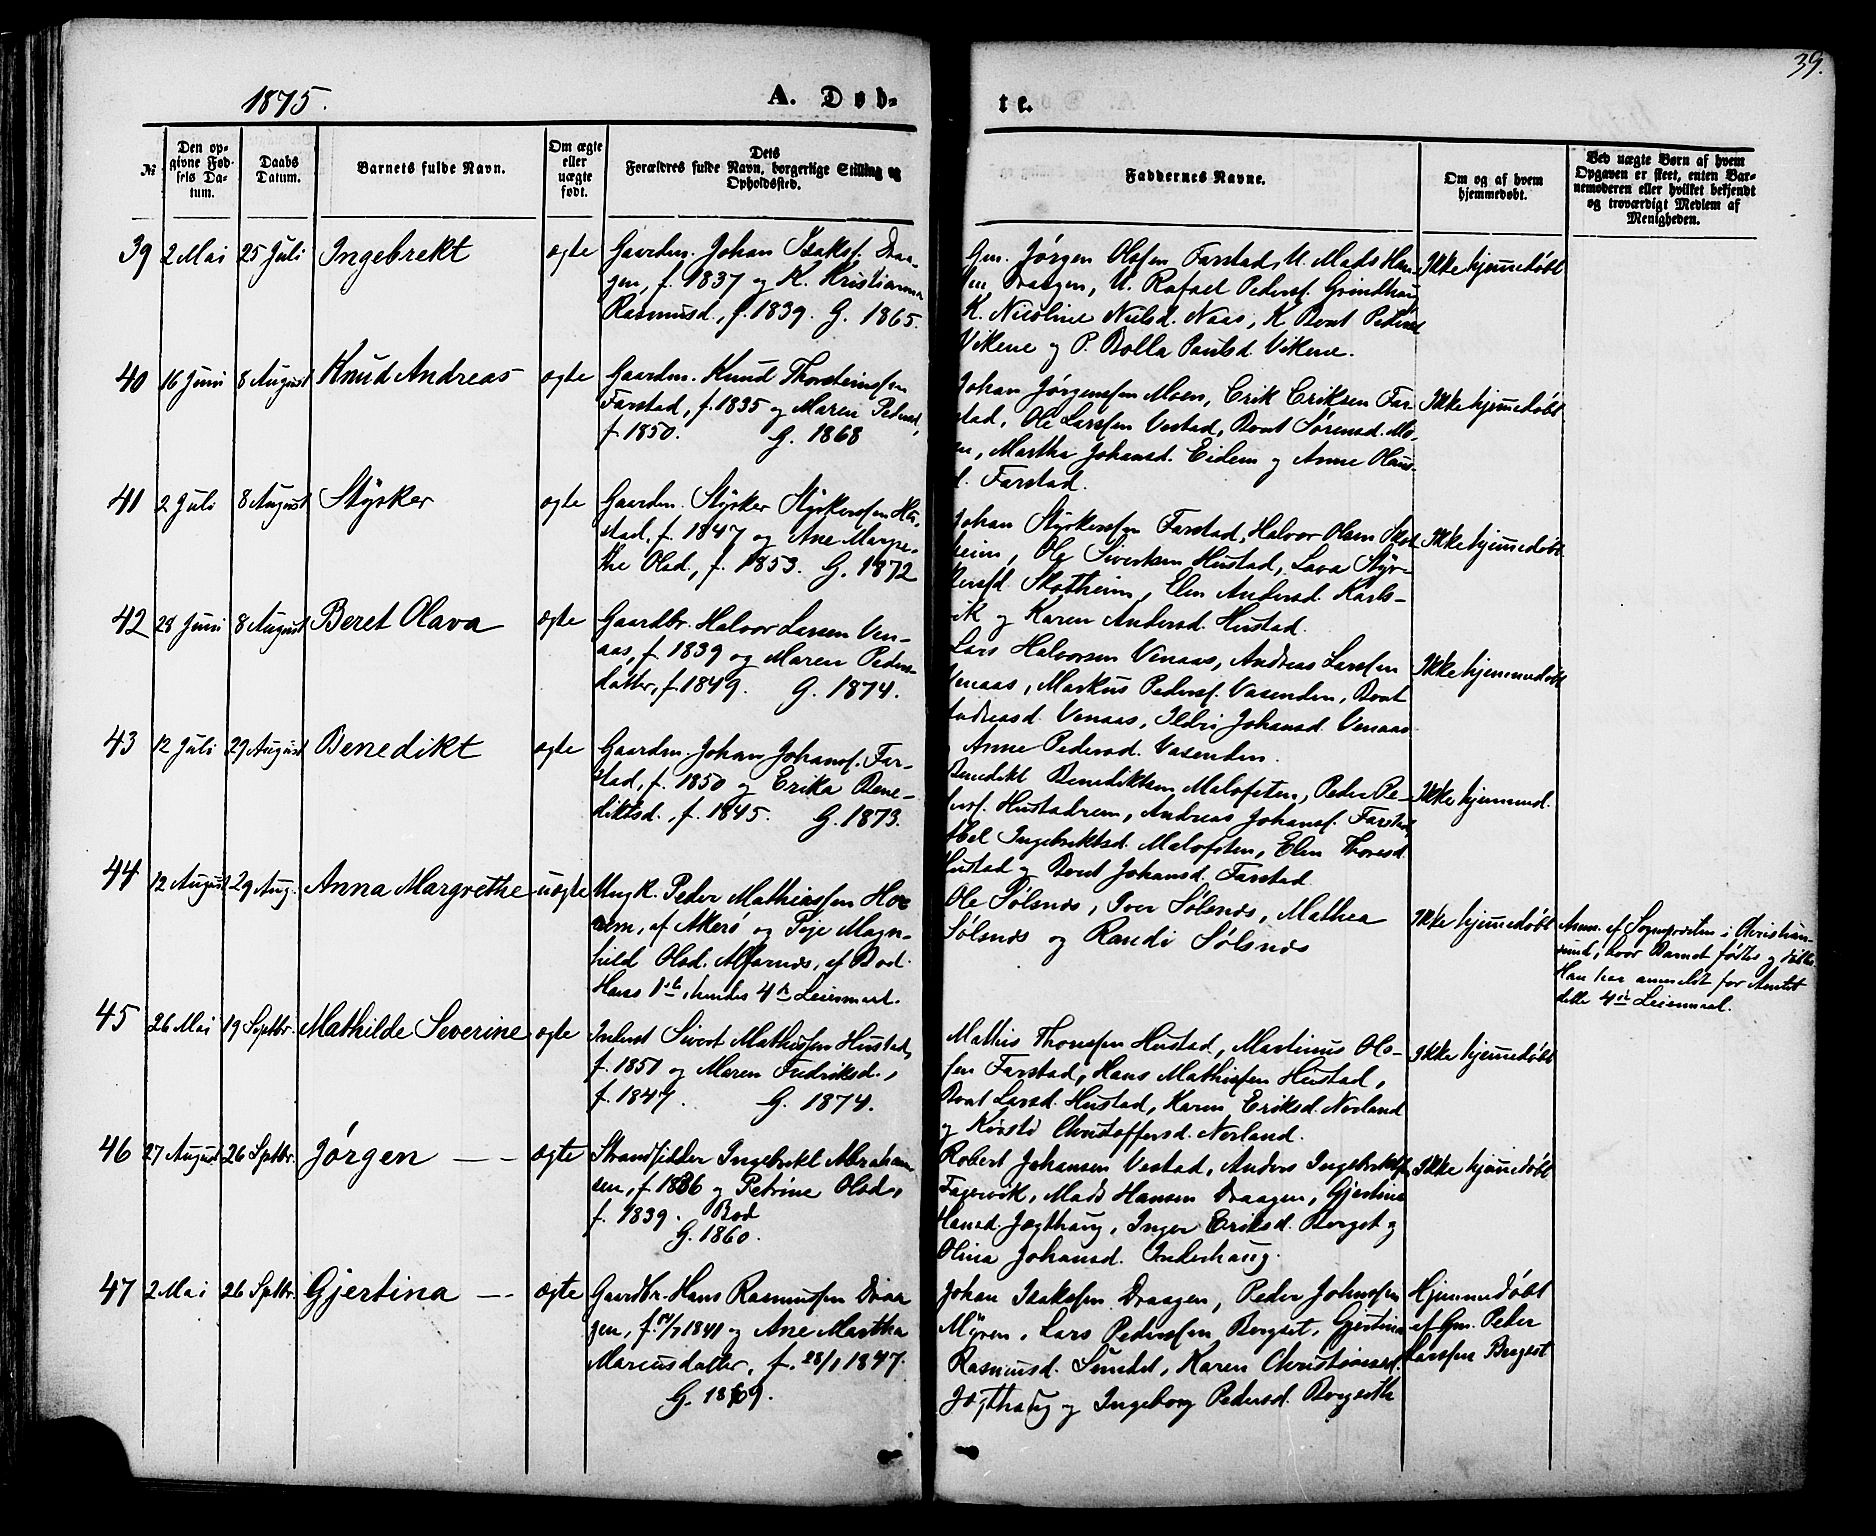 39.
1875.
A. Døb-
te.
№
Den op-
givne Fød-
sels Da-
tum.
Daabs
Datum.
Barnets fulde Navn.
Om ægte
eller
uægte
født.
Dets
Forældres fulde Navn, borgerlige Stilling og
Opholdssted.
Faddernes Navne.
Om og af hvem
hjemmedøbt.
Ved uægte Børn af hvem
Opgaven er skeet, enten Bar-
nemoderen eller hvilket bekjendt
og troværdigt Medlem af
Menigheden.
39 2 Mai 25 Juli Ingebrekt ægte
Gaardm. Johan Isaksf. Draa-
gen, f. 1837 og K. Kristianna
Rasmusd., f. 1839. G. 1865.
Gm. Jørgen Olsen Farstad, U. Mads Han-
sen Draagen, U. Rafael Pedersf. Grindhaug
K. Nicoline Nilsd. Naas, K. Beret Pedersd
Vikene og P. Bolla Paulsd. Vikene.
Ikke hjemmedøbt
40 16 Juni 8 August Knud Andreas ægte
Gaardm. Knud Thorsteinssen
Farstad, f. 1835 og Maren Pedersd.,
f. 1850. G. 1868
Johan Jørgenssen Moen, Erik Eriksen Far-
stad, Ole Larssen Vestad, Beret Sørensd. Mo-
en, Martha Johansd. Eidem og Anne Hans-
d. Farstad.
Ikke hjemmedøbt
41 2 Juli 8 August Stÿrker ægte
Gaardm. Stÿrker Stÿrkerssen Hu-
stad, f. 1847 og Ane Margre-
the Olsd., f. 1853. G. 1872
Johan Styrkerssen Farstad, Halvor Olsen Skot-
heim, Ole Sivertsen Hustad, Lava Stÿr-
kersd. Skotheim, Elen Andersd. Karls-
vik og Karen Andersd. Hustad.
Ikke hjemmedøbt
42 28 Juni 8 August Beret Olava ægte
Gaardbr. Halvor Larsen Ven-
aas, f. 1839 og Maren Peders-
datter, f. 1849. G. 1874.
Lars Halvorsen Venaas, Andreas Larssen
Venaas, Markus Pedersf. Vasenden, Beret
Andreasd. Venaas, Ildri Johansd. Venaas
og Anne Pedersd. Vasenden.
Ikke hjemmedøbt
43 12 Juli 29 August Benedikt ægte
Gaardm. Johan Johansf. Far-
stad, f. 1850 og Erika Bene-
diktsd., f. 1845. G. 1873.
Benedikt Benediktsen Malefeten, Peder Pe-
dersf. Hustadrem, Andreas Johansf. Farstad,
Abel Ingebriktsd. Malefeten, Elen Thoresd.
Hustad og Beret Johansd. Farstad.
Ikke hjemmed.
44 12 August 29 Aug. Anna Margrethe uægte
Ungk. Peder Mathiassen Hor-
nem, af Akerø og Pige Magn-
hild Olsd. Alfarnæs, af Bod.
Hans 1ste, hendes 4de Leiermaal.
Ole Sølsnæs, Iver Sølsnæs, Mathea
Sølsnæs og Randi Sølsnæs
Ikke hjemmedøbt
Anm. af Sognepræsten i Christian-
sund, hvor Barnet fødtes og
Han har anmeldt for Amtet
dette 4de Leiermaal.
45 26 Mai 19 Septbr. Mathilde Severine ægte
Inderst Sivert Mathissen Hustad,
f. 1851 og Maren Fredriksd.,
f. 1847. G. 1874.
Mathis Thomssen Hustad, Martinus Ol-
sen Farstad, Hans Mathissen Hustad,
Beret Larsd. Hustad, Karen Eriksd. Nerland
og Kirsti Christoffersd. Nerland.
Ikke hjemmedøbt
46 27 August 26 Septbr. Jørgen ægte
Strandsidder Ingebrikt Abraham-
sen, f. 1836 og Petrine Olsd.,
f. 1839. Bod
G. 1860.
Robert Johansen Vestad, Anders Ingebriktsf.
Fagervik, Mads Hansen Draagen, Gjertina
Hansd. Jægthaug, Inger Eriksd. Berget og
Olina Johansd. Inderhaug.
Ikke hjemmedøbt
47 2 Mai 26 Septbr. Gjertina ægte
Gaardbr. Hans Rasmussen Draa-
gen, f. 14/7 1841 og Ane Martha
Marcusdatter, f. 28/1 1847.
G. 1869.
Johan Isakssen Draagen, Peder Johnssen
Mÿren, Lars Pederssen Bergset, Gjertina
Rasmusd. Sundet, Karen Christiansd.
Jægthaug og Ingeborg Pedersd. Bergseth
Hjemmedøbt
af Gm. Peder
Larssen Bergset